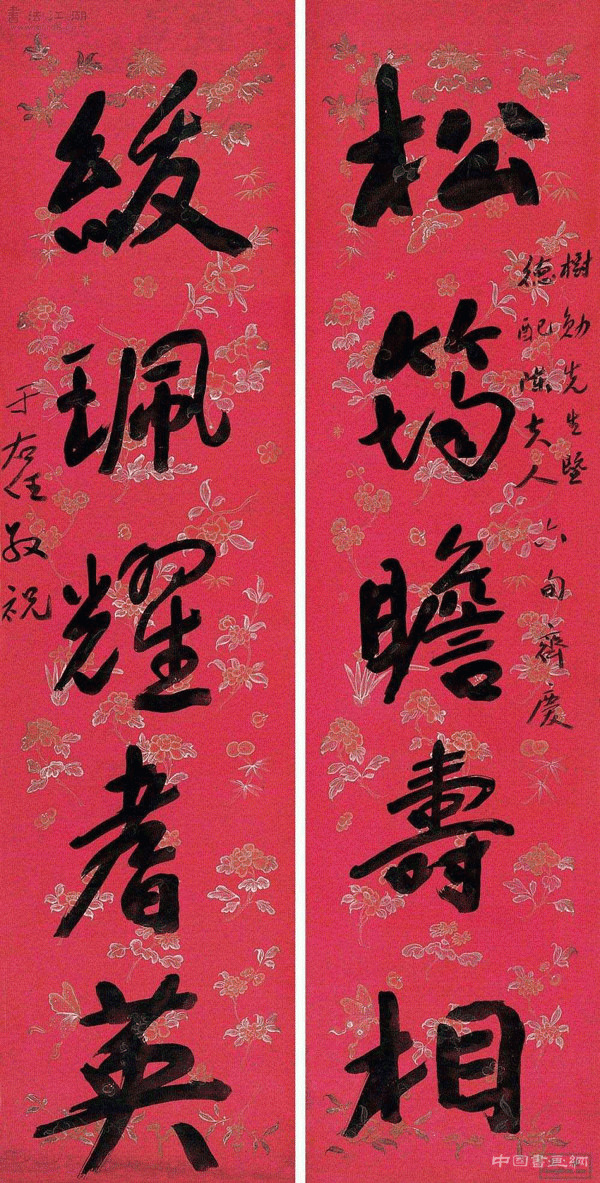 松筠瞻壽相
樹勛先生暨
德配陳夫人
六旬齊慶
綬珮耀耆英
于右任敬祝
書法江湖
中国書画網